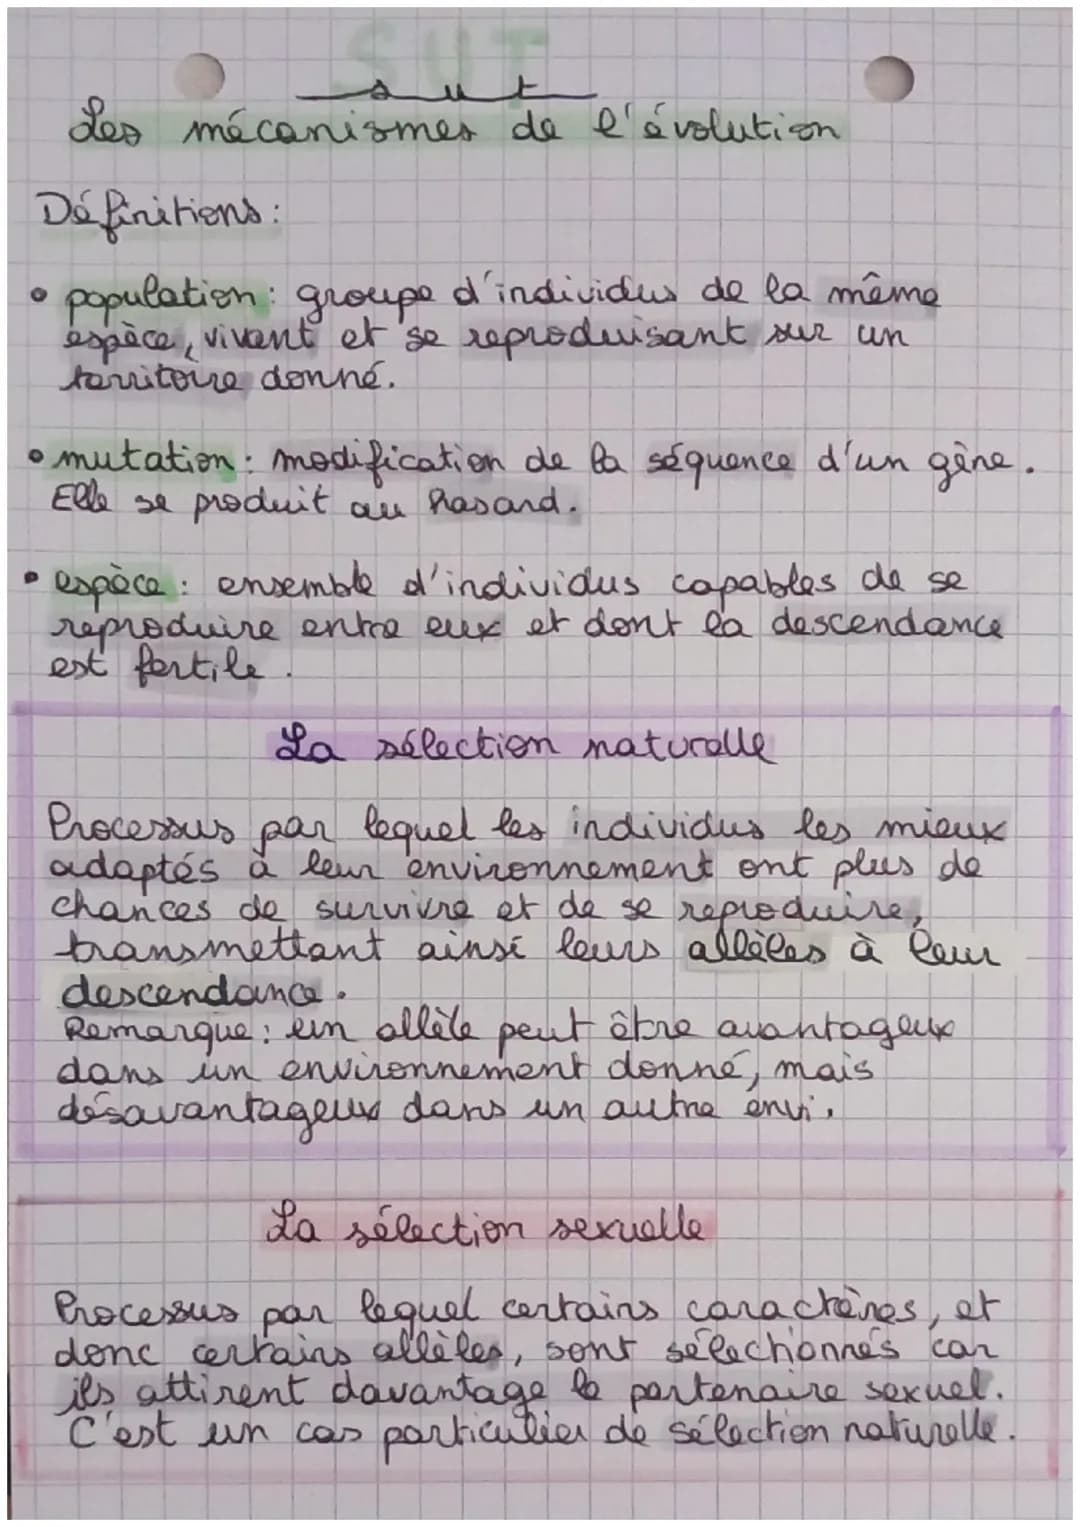 SVT
svt
Les mécanismes de l'évolution
Définitions :
• population : groupe d'individus de la même
espèce, vivant et se reproduisant sur un
territoire donné.
• mutation : modification de la séquence d'un gène.
Elle se produit au hasard.
• espèce : ensemble d'individus capables de se
reproduire entre eux et dont la descendance
est fertile.
La sélection naturelle
Processus par lequel les individus les mieux
adaptés à leur environnement ont plus de
chances de survivre et de se reproduire,
transmettant ainsi leurs allèles à leur
descendance.
Remarque : un allèle peut être avantageux
dans un environnement donné, mais
désavantageux dans un autre envi.
La sélection sexuelle
Processus par lequel certains caractères, et
donc certains allèles, sont sélectionnés car
ils attirent davantage le partenaire sexuel.
C'est un cas particulier de sélection naturelle.